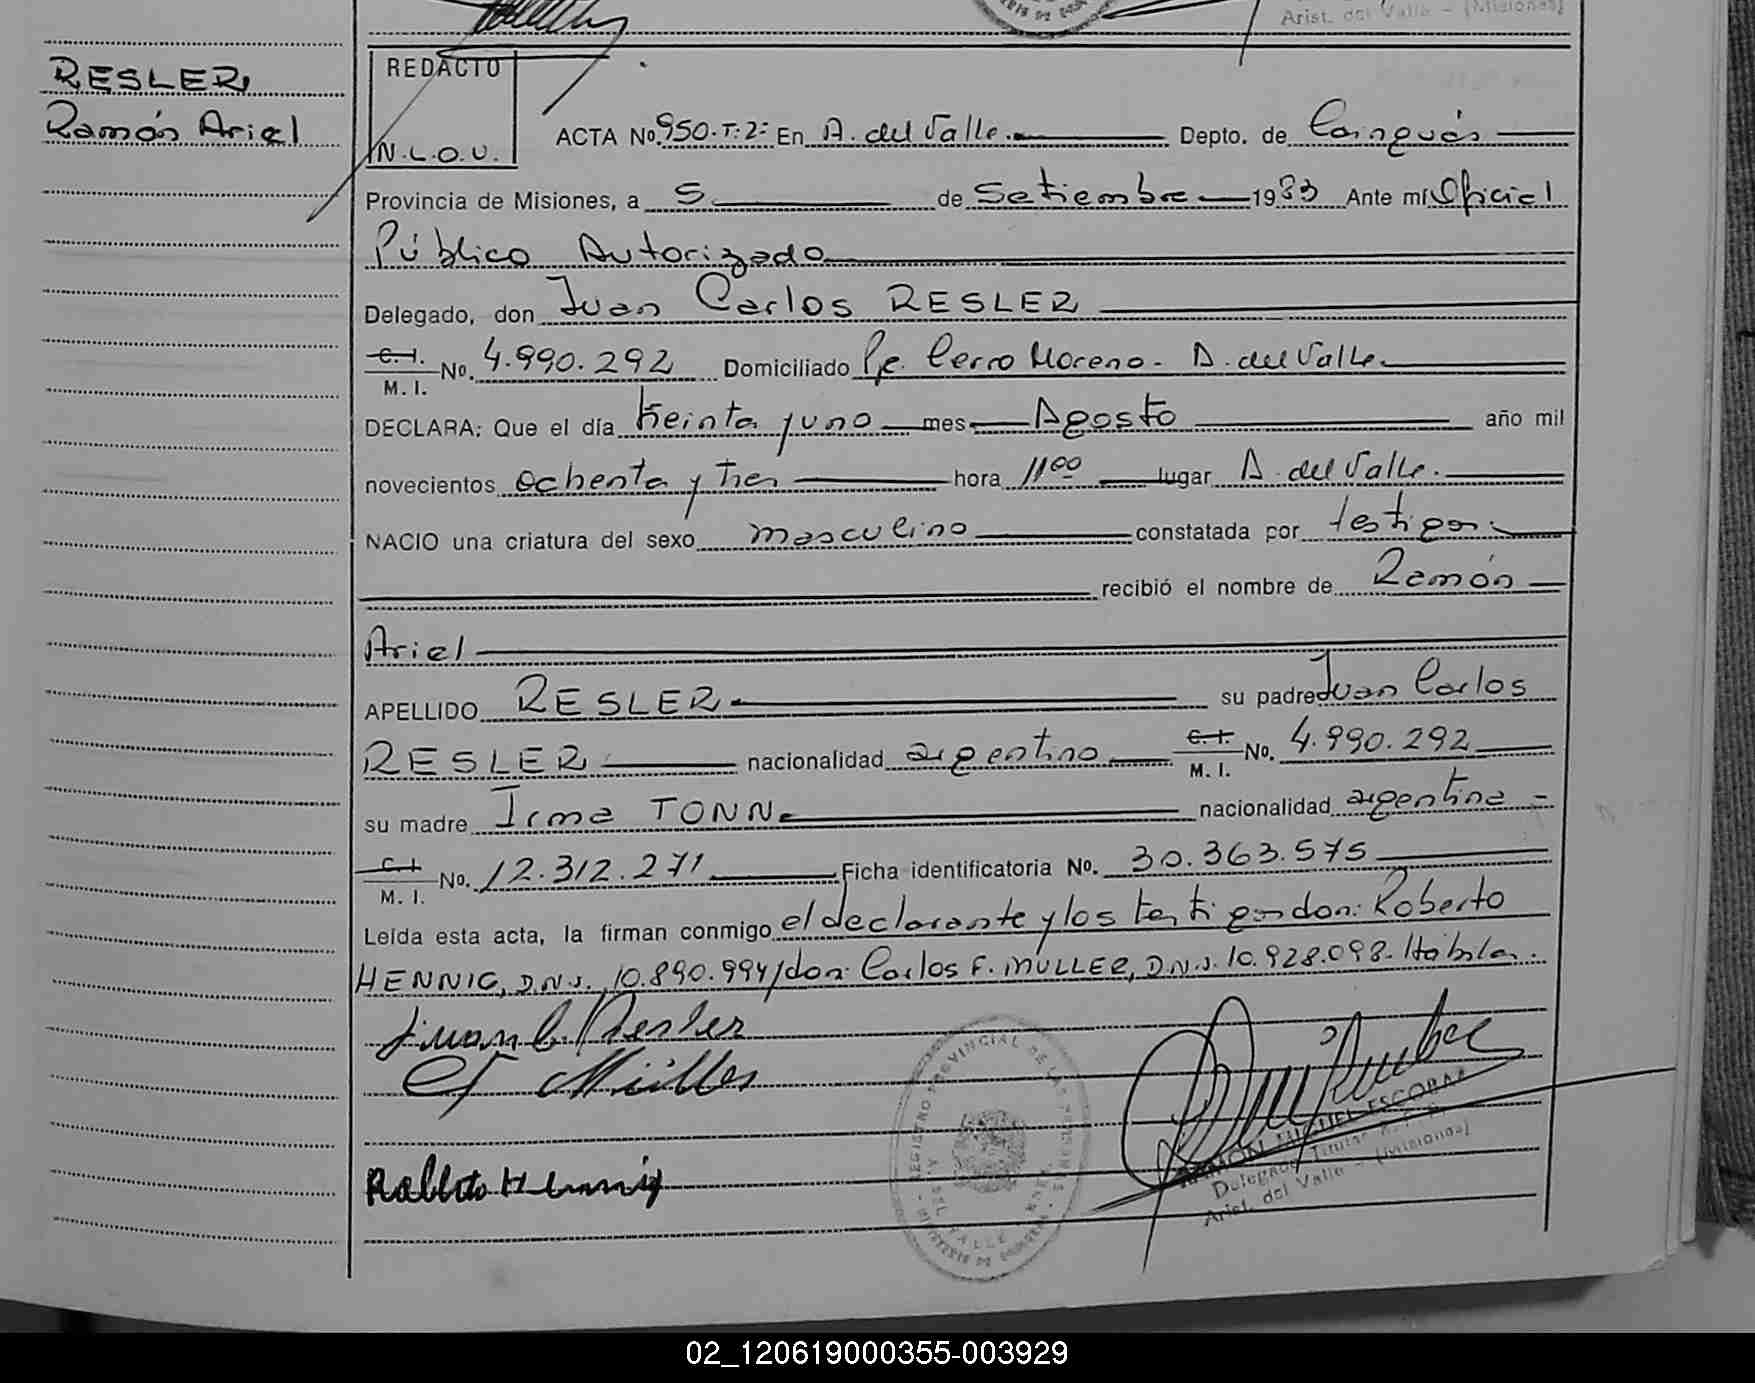 Arist. del Valle - (Misiones)
RESLER
Ramón Ariel
REDACTO
N.L.O.U.
ACTA No. 950.T:2: En A. del Valle. Depto. de Cainguás
Provincia de Misiones, a 5 de Setiembre 1983 Ante mí Oficial
Público Autorizado
Delegado, don Juan Carlos RESLER
C. I.
M. I. No. 4.990.292 Domiciliado Pje. Cerro Moreno - A. del Valle
DECLARA: Que el día treinta y uno mes Agosto año mil
novecientos ochenta y tres hora 11 00 lugar A. del Valle.
NACIO una criatura del sexo masculino constatada por testigos
recibió el nombre de Ramón
Ariel
APELLIDO RESLER su padre Juan Carlos
RESLER nacionalidad argentino C. I. M. I. No. 4.990.292
su madre Irma TONN nacionalidad argentina -
C. I.
M. I. No. 12.312.271 Ficha identificatoria No. 30.363.575
Leída esta acta, la firman conmigo el declarante y los testigos don: Roberto
HENNIG, D.N.I. 10.890.994 y don: Carlos F. MULLER, D.N.I. 10.928.098. Hábiles.
Juan C. Resler
CF Müller
Roberto Hennig
REGISTRO PROVINCIAL DE LAS PERSONAS
DEL VALLE
MINISTERIO DE GOBIERNO
RAMON MIGUEL ESCOBAR
Delegado Titular
Arist. del Valle - (Misiones)
02_120619000355-003929